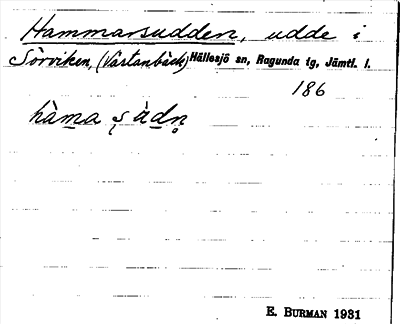 Hammarsudden, udde i
Sörviken, (Västanbäck) Hällesjö sn, Ragunda tg, Jämtl. l.
186
hàma ş ádn̥
E. BURMAN 1931